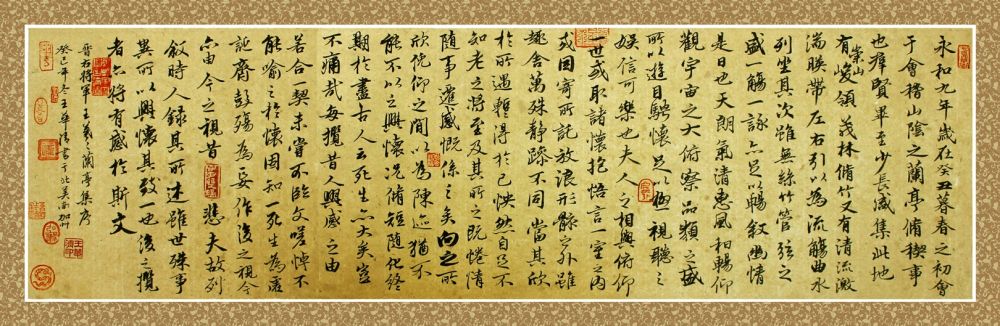 永和九年歲在癸丑暮春之初會
于會稽山陰之蘭亭脩稧事
也群賢畢至少長咸集此地
有崇山峻領茂林脩竹又有清流激
湍暎帶左右引以為流觴曲水
列坐其次雖無絲竹管弦之
盛一觴一詠亦足以暢敘幽情
是日也天朗氣清惠風和暢仰
觀宇宙之大俯察品類之盛
所以遊目騁懷足以極視聽之
娛信可樂也夫人之相與俯仰
一世或取諸懷抱悟言一室之內
或因寄所託放浪形骸之外雖
趣舍萬殊靜躁不同當其欣
於所遇暫得於己怏然自足不
知老之將至及其所之既惓情
隨事遷感慨係之矣向之所
欣俛仰之閒以為陳迹猶不
能不以之興懷況脩短隨化終
期於盡古人云死生亦大矣豈
不痛哉每攬昔人興感之由
若合一契未嘗不臨文嗟悼不
能喻之於懷固知一死生為虛
誕齊彭殤為妄作後之視今
亦由今之視昔悲夫故列
敘時人錄其所述雖世殊事
異所以興懷其致一也後之攬
者亦將有感於斯文
晉右將軍王羲之蘭亭集序
癸巳年冬王華清書于北美南加州